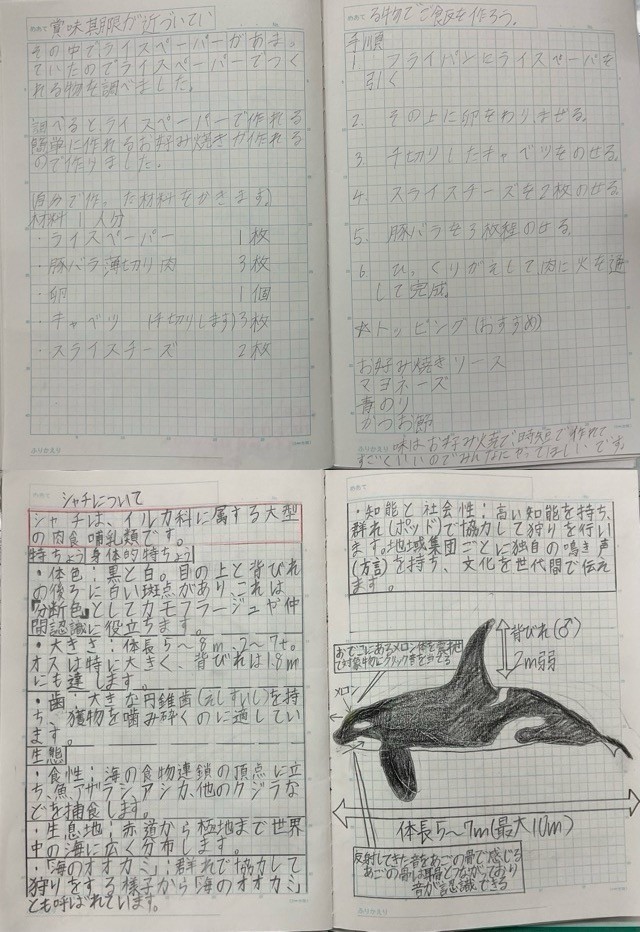 めあて 賞味期限が近づいてい
その中でライスペーパーがあまっ
ていたのでライスペーパーでつく
れる物を調べました。
調べるとライスペーパーで作れる
簡単に作れるお好み焼きが作れる
ので作りました。
(自分で作った材料をかきます)
材料 1人分
・ライスペーパー 1枚
・豚バラ薄切り肉 3枚
・卵 1個
・キャベツ (千切りします) 3枚
・スライスチーズ 2枚
ふりかえり
めあて る物でご飯を作ろう。
手順
1 フライパンにライスペーパを
引く
2. その上に卵をわりまぜる。
3. 千切りしたキャベツをのせる。
4. スライスチーズを2枚のせる。
5. 豚バラを3枚程のせる。
6. ひっくりがえして肉に火を通
して完成。
☆トッピング(おすすめ)
お好み焼きソース
マヨネーズ
青のり
かつお節
ふりかえり 味はお好み焼で時短で作れて
すごくいいのでみんなにやってほしいです。
シャチについて
シャチは、イルカ科に属する大型
の肉食哺乳類です。
特ちょう身体的特ちょう
・体色:黒と白。目の上と背びれ
の後ろに白い斑点があり、これは
「分断色」としてカモフラージュや仲
間認識に役立ちます。
・大きさ:体長5〜8m、2〜7t。
オスは特に大きく、背びれは1.8m
にも達します。
・歯:大きな円錐歯(えんすいし)を持
ち、獲物を噛み砕くのに適してい
ます。
生態
・食性:海の食物連鎖の頂点に立
ち、魚、アザラシ、アシカ、他のクジラな
どを捕食します。
・生息地:赤道から極地まで世界
中の海に広く分布します。
・「海のオオカミ」:群れで協力して
狩りをする様子から「海のオオカミ」
とも呼ばれています。
めあて
・知能と社会性:高い知能を持ち、
群れ(ポッド)で協力して狩りを行い
ます。地域集団ごとに独自の鳴き声
(方言)を持ち、文化を世代間で伝え
ます。
おでこにあるメロン体を
で対象物にクリック音を当てる
メロン
背びれ(♂)
2m弱
体長5〜7m(最大10m)
反射してきた音をあごの骨で感じる
あごの骨は耳骨とつながっており
音が認識できる
ふりかえり